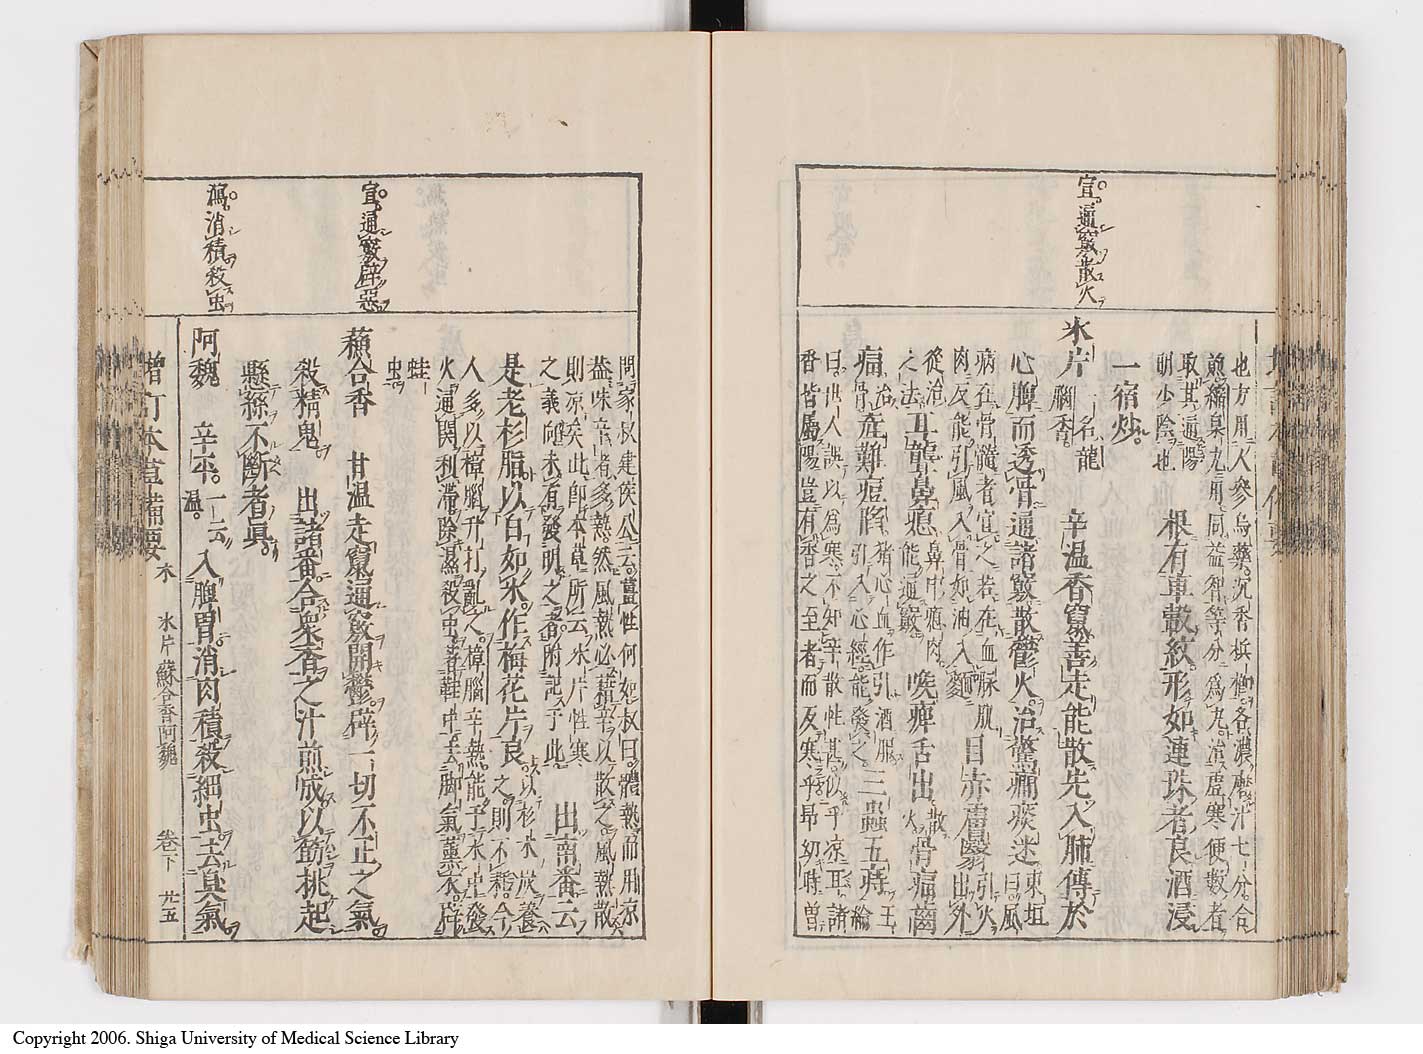 宣通竅散火
也方用人參烏藥沉香梹榔各濃磨汁七分合
煎縮泉丸用同益智等分爲丸治虛寒便數者
取其通陽
明少陰也
根有車轂紋形如連珠者良酒浸
一宿炒。
氷片
一名龍
腦香
辛温香竄善走能散先入肺傳於
心脾而透骨通諸竅散鬱火治驚癇痰迷
東垣
曰風
病在骨髓者宜之若在血脉肌
肉反能引風入骨如油入麵
目赤膚翳
引火
出外
從治
之法
耳聾鼻瘜
鼻中瘜肉
能通竅
喉痺舌出
散
火
骨痛齒
痛
治
骨
產難痘陷
猪心血作引酒服
引入心經能發之
三蟲五痔
王
綸
曰世人誤以爲寒不知辛散性甚似乎凉耳諸
香皆屬陽豈有香之至者而反寒乎昂幼時曾
宣通竅辟惡
瀉消積殺虫
問家叔建侯公云薑性何如叔曰體熱而用凉
益味辛者多熱然風熱必藉辛以散之風熱散
則凉矣此即本草所云氷片性寒
之義向未有發明之者附記于此
出南番云
是老杉脂以白如氷作梅花片良
以杉木炭養
之則不耗今
人多以樟腦升打亂之。樟腦辛熱能于水中發
火通関利滯除濕殺虫著鞋中去脚氣薰衣辟
蛀
虫
蘓合香 甘温走竄通竅開鬱辟一切不正之氣
殺精鬼 出諸番合衆香之汁煎成以筯挑起
懸絲不斷者眞。
阿魏 辛平。
一云
温。
入脾胃消肉積殺細虫去臭氣
增訂本草備要 木 氷片蘇合香阿魏 卷下 廿五